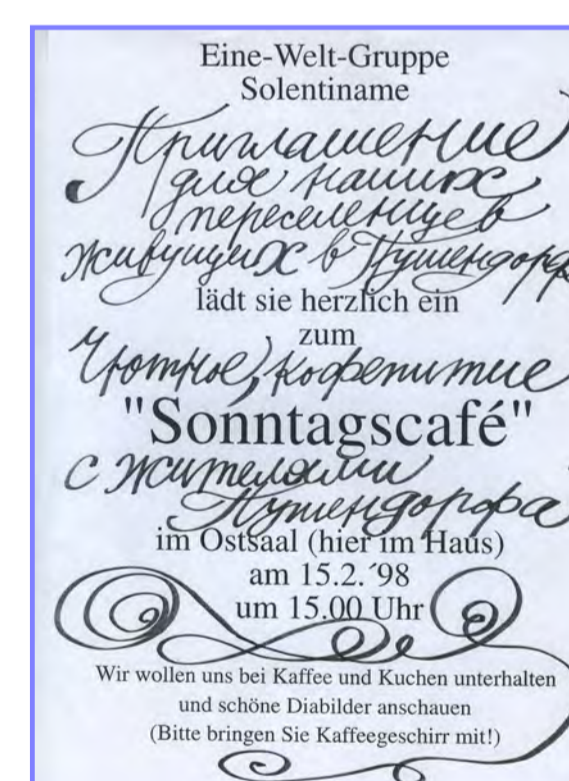 Eine-Welt-Gruppe
Solentiname
Приглашение
для наших
переселенцев
живущих в Пушендорф
lädt sie herzlich ein
zum
Уютное, кофепитие
"Sonntagscafé"
с жителями
Пушендорфа
im Ostsaal (hier im Haus)
am 15.2.´98
um 15.00 Uhr
Wir wollen uns bei Kaffee und Kuchen unterhalten
und schöne Diabilder anschauen
(Bitte bringen Sie Kaffeegeschirr mit!)